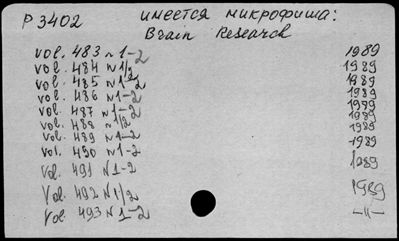 P 3402 имеется микрофиша:
Brain Research
vol. 483 N 1-2 1989
vol. 484 N 1/2 1989
vol. 485 N 1-2 1989
vol. 486 N 1-2 1989
vol. 487 N 1-2 1989
vol. 488 N 1/2 1989
vol. 489 N 1-2 1989
vol. 490 N 1-2 1989
Vol. 491 N 1-2 1989
Vol. 492 N 1/2 1989
Vol. 493 N 1-2 -11-